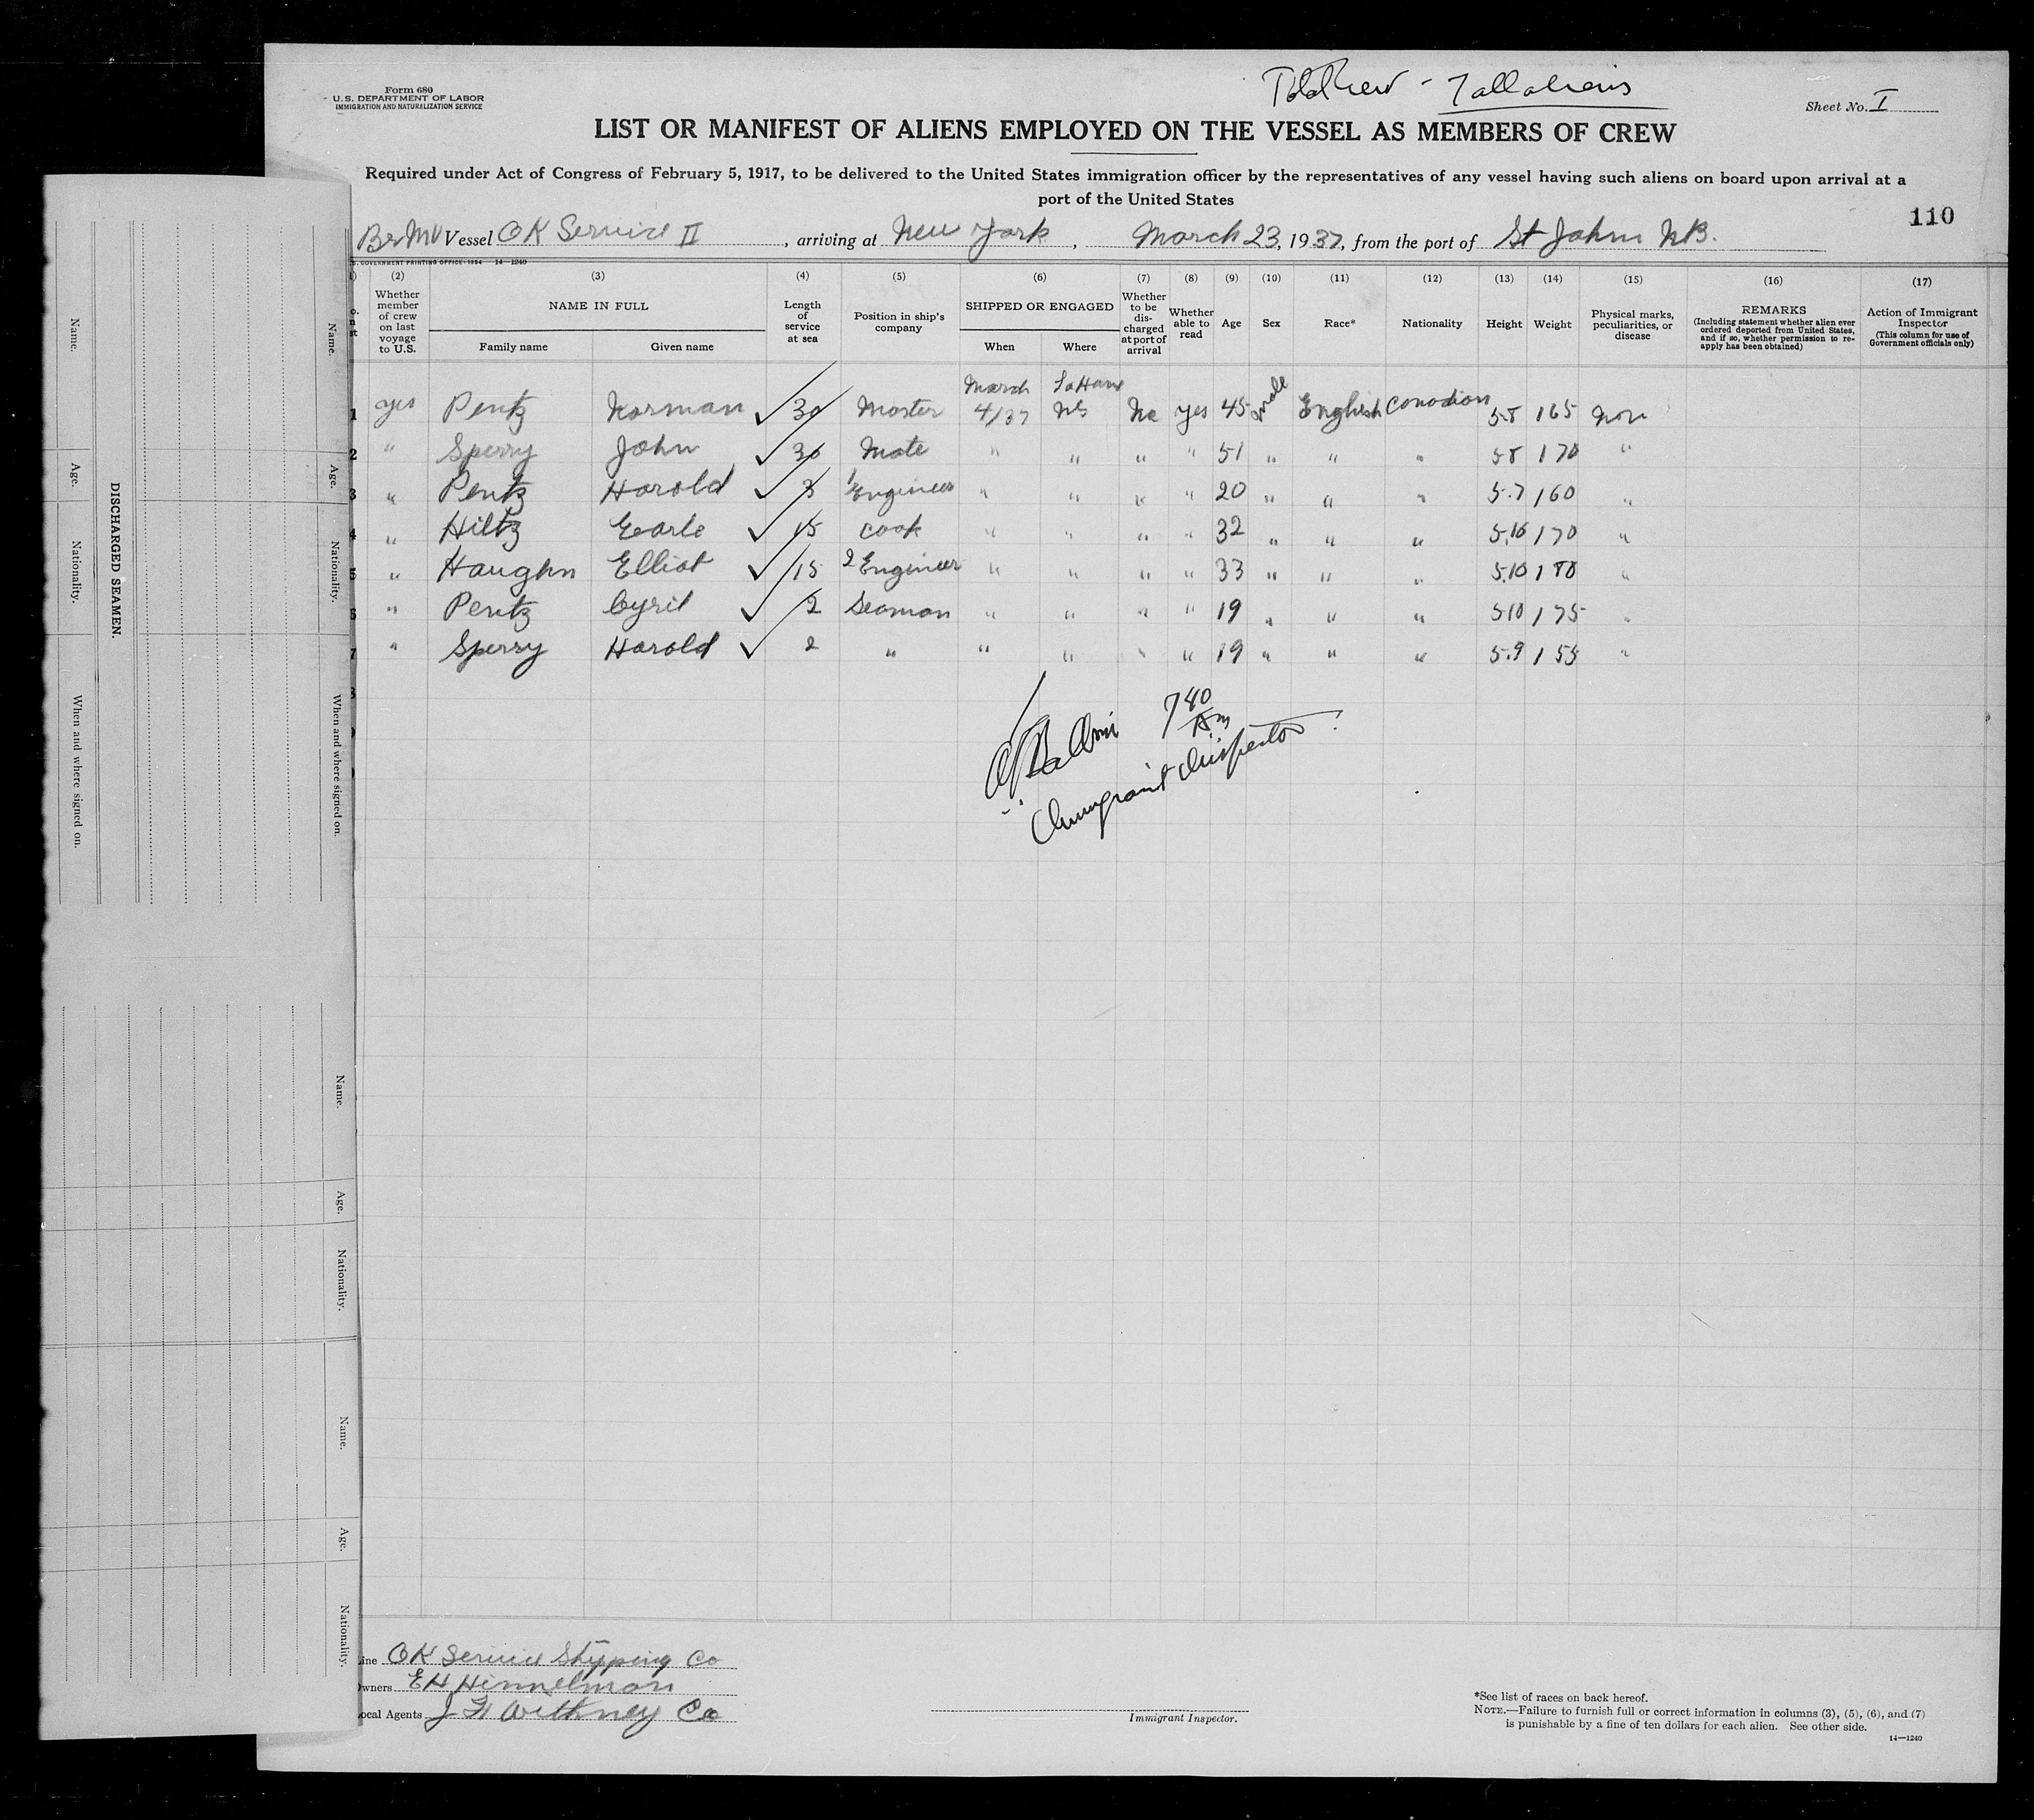 Form 680
U.S. DEPARTMENT OF LABOR
IMMIGRATION AND NATURALIZATION SERVICE
Total Crew - 7 all aliens
Sheet No. I
LIST OR MANIFEST OF ALIENS EMPLOYED ON THE VESSEL AS MEMBERS OF CREW
Required under Act of Congress of February 5, 1917, to be delivered to the United States immigration officer by the representatives of any vessel having such aliens on board upon arrival at a
port of the United States
110
Br MV Vessel OK Service II, arriving at New York, March 23, 1937, from the port of St John NB.
GOVERNMENT PRINTING OFFICE: 1934 14-1240
(2) (3) (4) (5) (6) (7) (8) (9) (10) (11) (12) (13) (14) (15) (16) (17)
Whether member of crew on last voyage to U.S. NAME IN FULL Family name Given name Length of service at sea Position in ship's company SHIPPED OR ENGAGED When Where Whether to be discharged at port of arrival Whether able to read Age Sex Race* Nationality Height Weight Physical marks, peculiarities, or disease REMARKS (Including statement whether alien ever ordered deported from United States, and if so, whether permission to re-apply has been obtained) Action of Immigrant Inspector (This column for use of Government officials only)
1 yes Pentz Norman ✓ 30 Master March 4/37 LaHave NS No yes 45 male English Canadian 5-8 165 Non
2 " Sperry John ✓ 30 Mate " " " " 51 " " " 58 170 "
3 " Pentz Harold ✓ 3 1 Engineer " " " " 20 " " " 5.7 160 "
4 " Hiltz Earle ✓ 15 Cook " " " " 32 " " " 5.10 170 "
5 " Haughn Elliot ✓ 15 2 Engineer " " " " 33 " " " 5.10 180 "
6 " Pentz Cyril ✓ 2 Seaman " " " " 19 " " " 510 175 "
7 " Sperry Harold ✓ 2 " " " " " 19 " " " 5.9 155 "
740
Am
Immigrant Inspector
Line OK Service Shipping Co
Owners EH Himmelman
Local Agents J F Withney Co
Immigrant Inspector.
*See list of races on back hereof.
NOTE.—Failure to furnish full or correct information in columns (3), (5), (6), and (7)
is punishable by a fine of ten dollars for each alien. See other side.
14—1240
DISCHARGED SEAMEN.
Name. Age. Nationality. When and where signed on.
Name. Age. Nationality. When and where signed on.
Name. Age. Nationality.
Name. Age. Nationality.